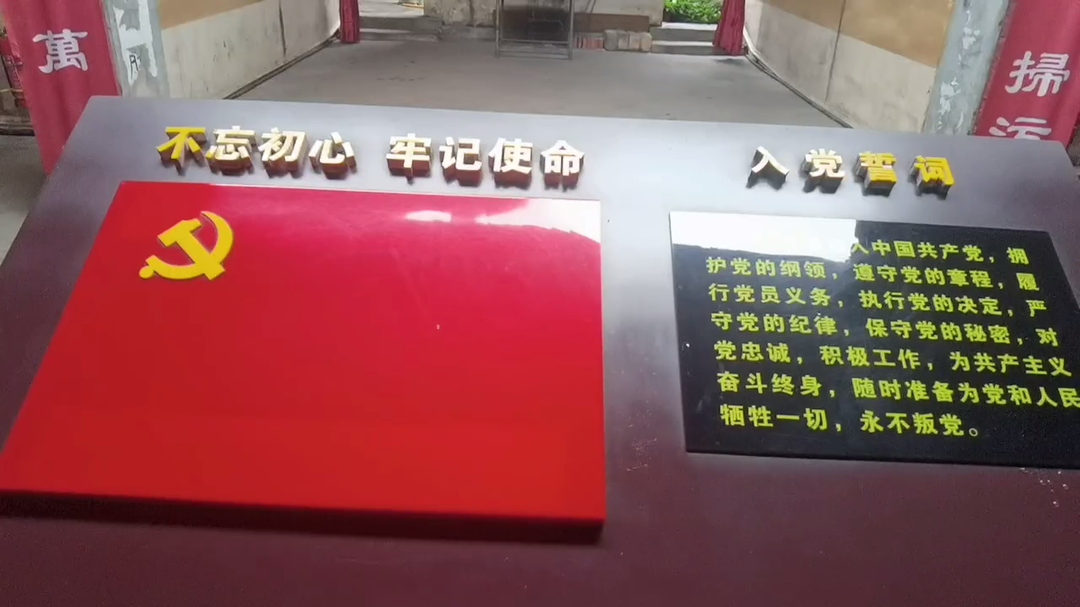 萬
掃
不忘初心 牢记使命
入党誓词
入中国共产党，拥
护党的纲领，遵守党的章程，履
行党员义务，执行党的决定，严
守党的纪律，保守党的秘密，对
党忠诚，积极工作，为共产主义
奋斗终身，随时准备为党和人民
牺牲一切，永不叛党。